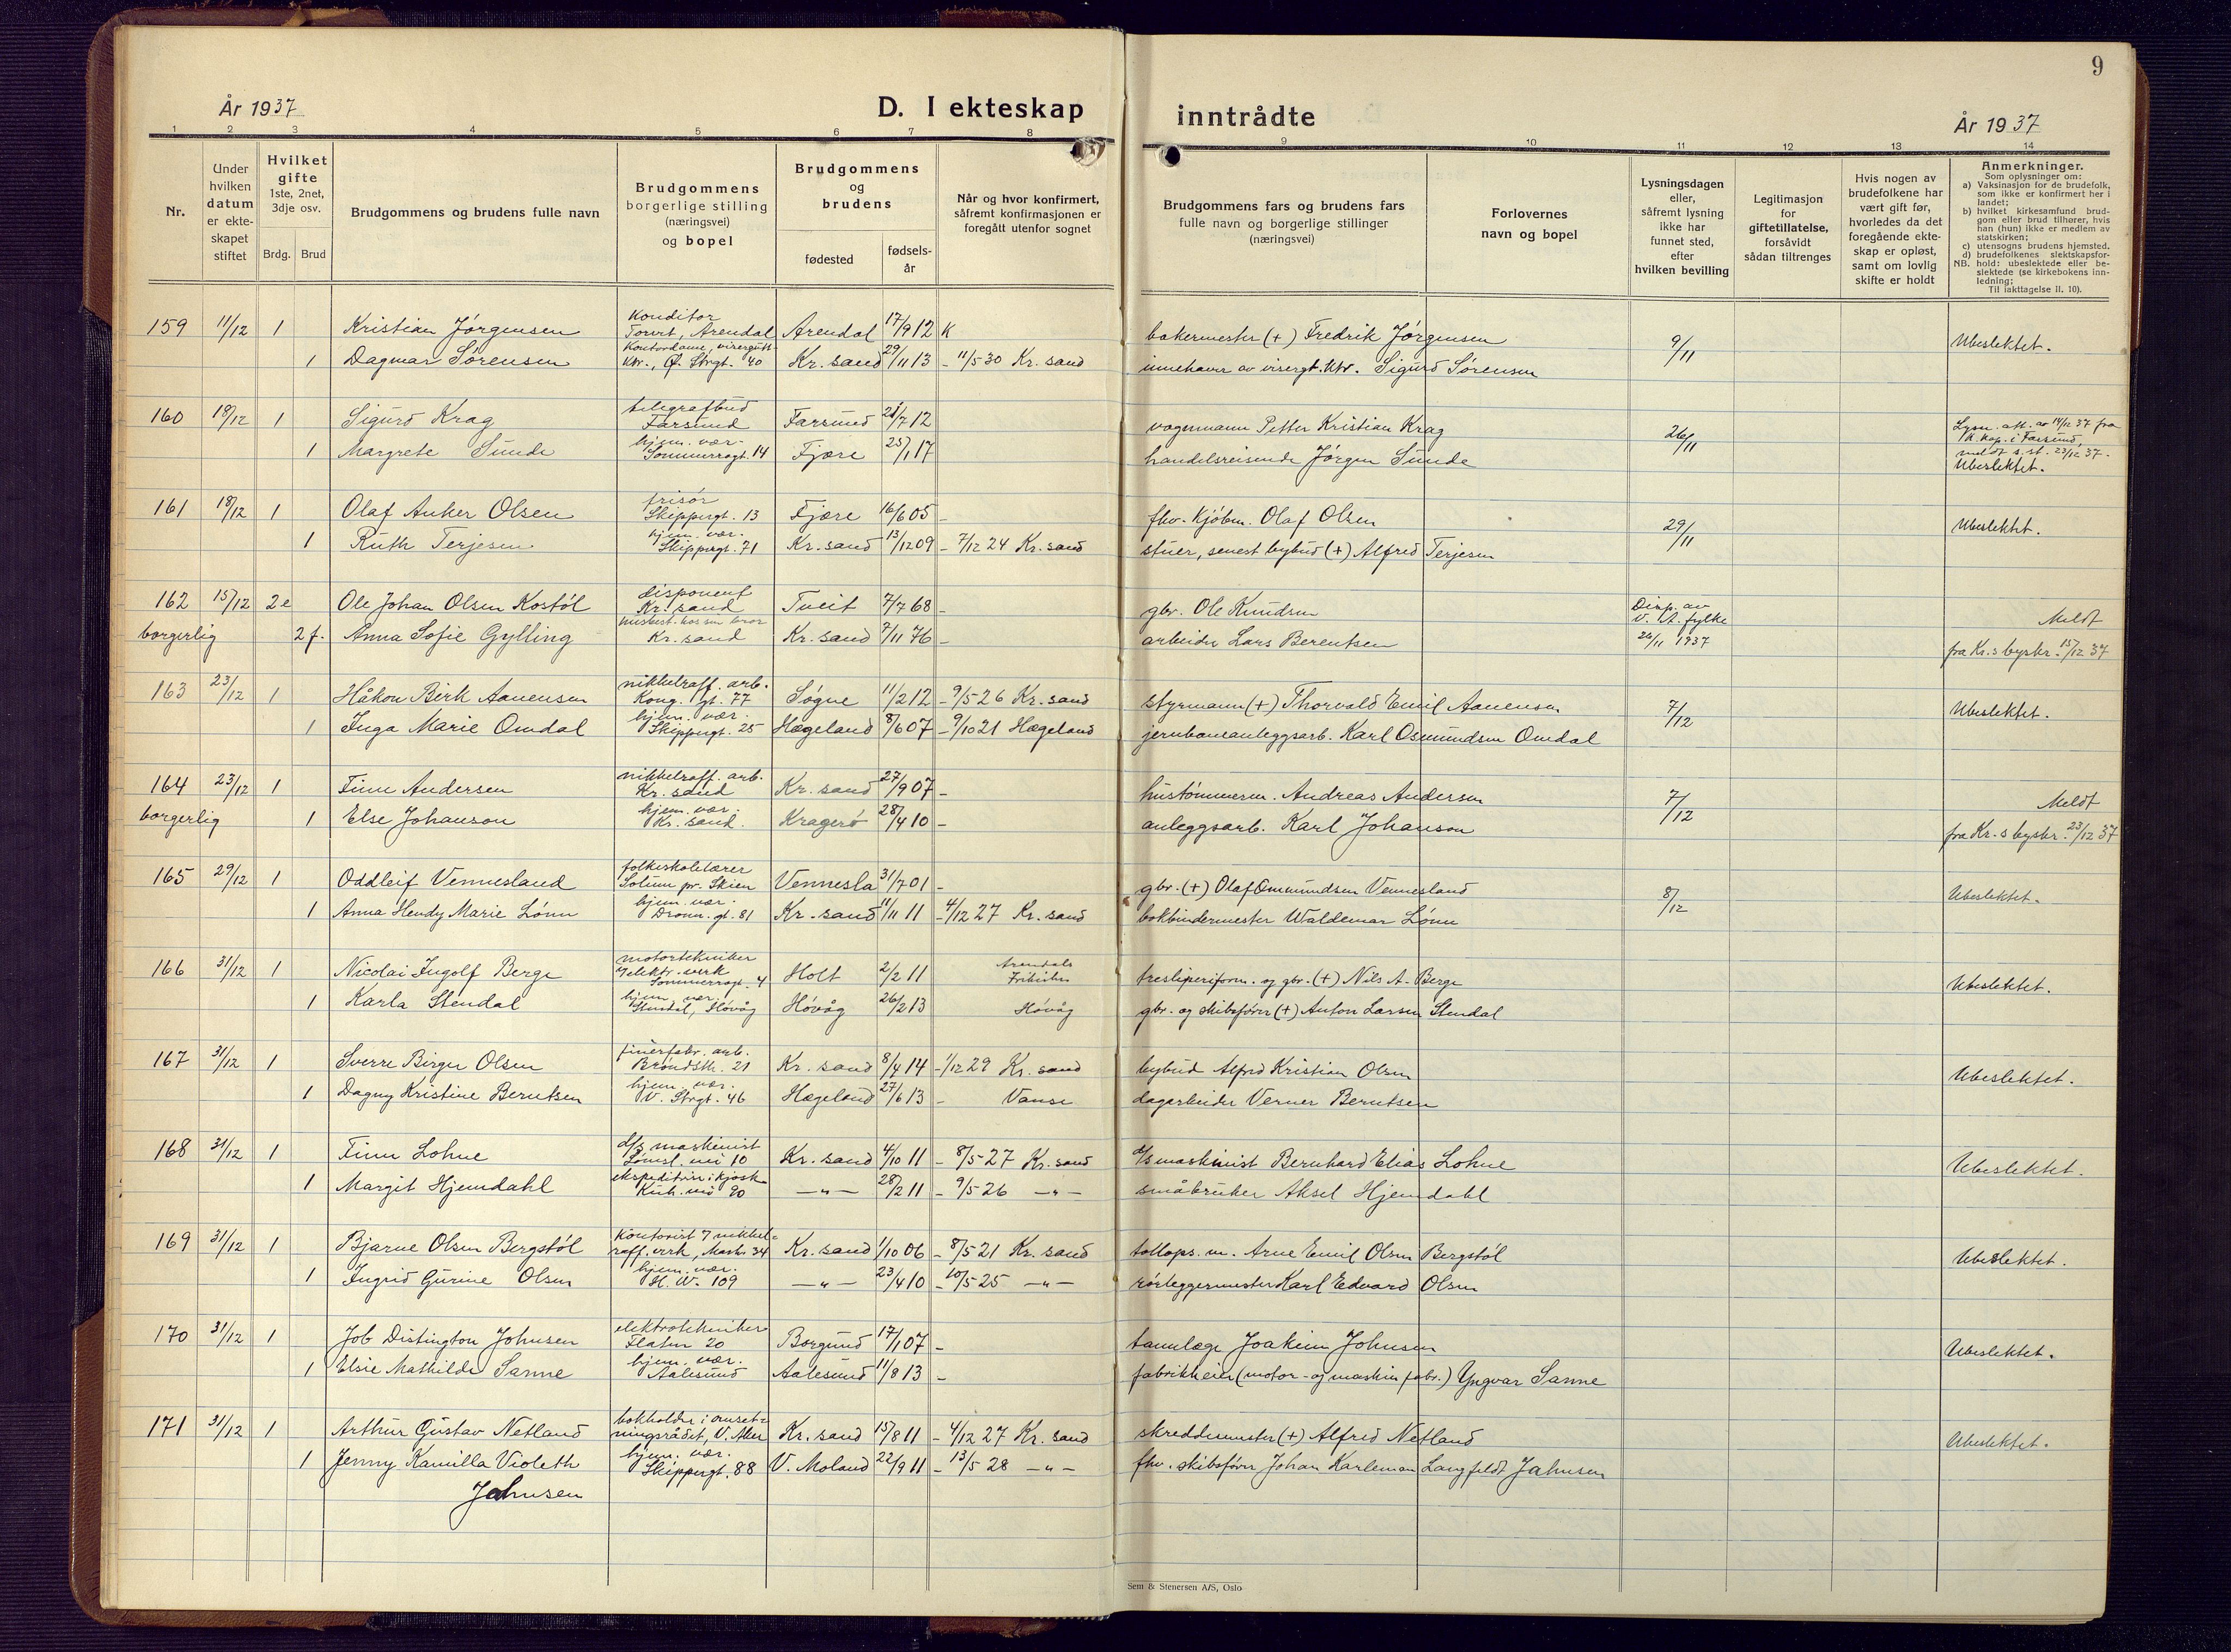 9
År 1937
D. I ekteskap inntrådte
År 1937
1 2 3 4 5 6 7 8 9 10 11 12 13 14
Nr.
Under hvilken datum er ekte- skapet stiftet
Hvilket gifte 1ste, 2net, 3dje osv.
Brdg. Brud
Brudgommens og brudens fulle navn
Brudgommens borgerlige stilling (næringsvei) og bopel
Brudgommens og brudens
fødested
fødsels- år
Når og hvor konfirmert, såfremt konfirmasjonen er foregått utenfor sognet
Brudgommens fars og brudens fars fulle navn og borgerlige stillinger (næringsvei)
Forlovernes navn og bopel
Lysningsdagen eller, såfremt lysning ikke har funnet sted, efter hvilken bevilling
Legitimasjon for giftetillatelse, forsåvidt sådan tiltrenges
Hvis nogen av brudefolkene har vært gift før, hvorledes da det foregående ekte- skap er opløst, samt om lovlig skifte er holdt
Anmerkninger.
Som oplysninger om:
a) Vaksinasjon for de brudefolk, som ikke er konfirmert her i landet;
b) hvilket kirkesamfund brud- gom eller brud tilhører, hvis han (hun) ikke er medlem av statskirken;
c) utensogns brudens hjemsted.
d) brudefolkenes slektskapsfor-
NB. hold: ubeslektede eller be- slektede (se kirkebokens inn- ledning;
Til iakttagelse II. 10).
159 11/12 1 Kristian Jørgensen konditor Torvet, Arendal Arendal 17/9 12 K bakermester (+) Fredrik Jørgensen 9/11 Ubeslektet.
1 Dagmar Sørensen Kontordame, visergutt- ktr., Ø. Strgt. 40 Kr. sand 29/11 13 - 11/5 30 Kr. sand innehaver av visergt. ktr. Sigurd Sørensen
160 18/12 1 Sigurd Krag telegrafbud Farsund Farsund 21/7 12 vognmann Petter Kristian Krag 26/11 Lysn. att. av 14/12 37 fra
1 Margrete Sunde hjem. vær. Sommerrogt. 14 Fjære 25/1 17 handelsreisende Jørgen Sunde i Farsund, meldt s. st. 23/12 37. Ubeslektet.
161 18/12 1 Olaf Anker Olsen frisør Skippergt. 13 Fjære 16/6 05 - fhv. kjøbm. Olaf Olsen 29/11 Ubeslektet.
1 Ruth Terjesen hjem. vær. Skippergt. 71 Kr. sand 13/12 09 - 7/12 24 Kr. sand stuer, senest bybud (+) Alfred Terjesen
162 15/12 2e Ole Johan Olsen Kostøl disponent Kr. sand Tveit 7/7 68 - gbr. Ole Knudsen Disp. av V. A. fylke 26/11 1937 Meldt
borgerlig 2 f. Anna Sofie Gylling husbest. hos sin bror Kr. sand Kr. sand 7/11 76 - arbeider Lars Berentsen fra Kr.s byskr. 15/12 37
163 23/12 1 Håkon Birk Aanensen nikkelraff. arb. Kong. gt. 77 Søgne 11/2 12 - 9/5 26 Kr. sand styrmann (+) Thorvald Emil Aanensen 7/12 Ubeslektet.
1 Inga Marie Omdal hjem. vær. Skippergt. 25 Hægeland 8/6 07 - 9/10 21 Hægeland jernbaneanleggsarb. Karl Osmundsen Omdal
164 23/12 1 Finn Andersen nikkelraff. arb. Kr. sand Kr. sand 27/9 07 - hustømmerm. Andreas Andersen 7/12 Meldt
borgerlig 1 Else Johanson hjem. vær. Kr. sand. Kragerø 28/4 10 - anleggsarb. Karl Johanson fra Kr.s byskr. 23/12 37
165 29/12 1 Oddleif Vennesland folkeskolelærer Solum pr. Skien Vennesla 31/7 01 - gbr. (+) Olaf Ommundsen Vennesland 8/12 Ubeslektet.
1 Anna Hendy Marie Lønn hjem. vær. Dronn. gt. 81 Kr. sand 11/11 11 - 4/12 27 Kr. sand bokbindermester Waldemar Lønn
166 31/12 1 Nicolai Ingolf Berge motortekniker elektr. verk Sommerrogt. 4 Holt 2/2 11 Arendals Frikirke tresliperiform. og gbr. (+) Nils A. Berge Ubeslektet.
1 Karla Stendal hjem. vær. Stendal, Høvåg Høvåg 26/2 13 Høvåg gbr. og skibsfører (+) Anton Larsen Stendal
167 31/12 1 Sverre Birger Olsen finérfabr. arb. Brøndstk. 21 Kr. sand 8/4 14 - 1/12 29 Kr. sand bybud Alfred Kristian Olsen Ubeslektet.
1 Dagny Kristine Berntsen hjem. vær. V. Strgt. 46 Hægeland 27/6 13 - Vanse dagarbeider Verner Berntsen
168 31/12 1 Finn Lohne d/s maskinist Lømsl. vei 10 Kr. sand 4/10 11 - 8/5 27 Kr. sand d/s maskinist Bernhard Elias Lohne Ubeslektet.
1 Margit Hjemdahl ekspeditrise i kjosk Kuh. vei 90 —"— 28/2 11 - 9/5 26 —"— småbruker Aksel Hjemdahl
169 31/12 1 Bjarne Olsen Bergstøl kontorist i nikkel- raff. verk, Mark. 34 Kr. sand 1/10 06 - 8/5 21 Kr. sand tollops. m. Arne Emil Olsen Bergstøl Ubeslektet.
1 Ingrid Gurine Olsen hjem. vær. H. W. 109 —"— 23/4 10 - 10/5 25 —"— rørleggermester Karl Edvard Olsen
170 31/12 1 Job Distington Johnsen elektrotekniker Flaten 20 Borgund 17/1 07 - tannlæge Joakim Johnsen Ubeslektet.
1 Elsie Mathilde Sanne hjem. vær. Aalesund Aalesund 11/8 13 - fabrikkeier (motor- og maskin fabr.) Yngvar Sanne
171 31/12 1 Arthur Gustav Netland bokholder i omset- ningsrådet, V. Aker Kr. sand 15/8 11 - 4/12 27 Kr. sand skreddermester (+) Alfred Netland Ubeslektet.
1 Jenny Kamilla Violeth Jahnsen hjem. vær. Skippergt. 88 V. Moland 22/9 11 - 13/5 28 —"— fhv. skibsfører Johan Karleman Langfeldt Jahnsen
Sem & Stenersen A/S, Oslo